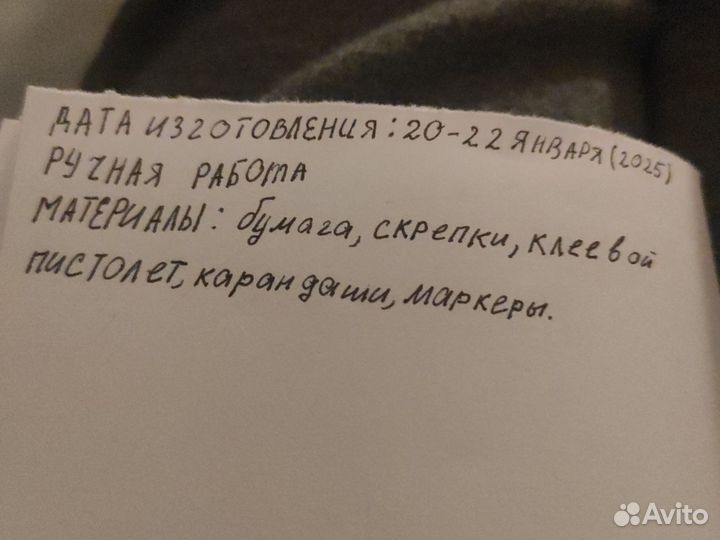 ДАТА ИЗГОТОВЛЕНИЯ: 20-22 ЯНВАРЯ (2025)
РУЧНАЯ РАБОТА
МАТЕРИАЛЫ: бумага, скрепки, клеевой
пистолет, карандаши, маркеры.
Avito